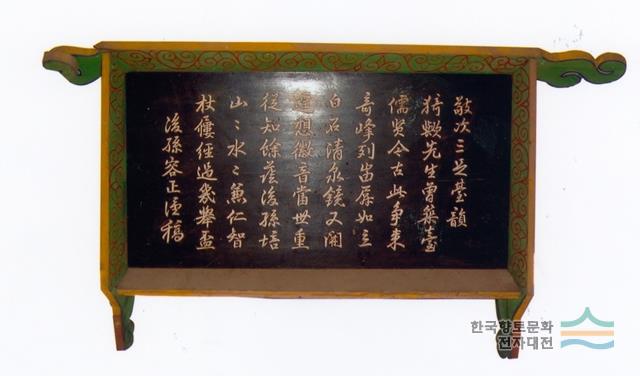 敬次三足臺韻
猗歟先生曾築臺
儒賢今古此爭來
奇峰列峀屛如立
白石清泉鏡又開
想徽音當世重
從知餘蔭後孫培
山〻水〻兼仁智
杖屨經過幾擧盃
後孫容正謹稿
한국향토문화
전자대전